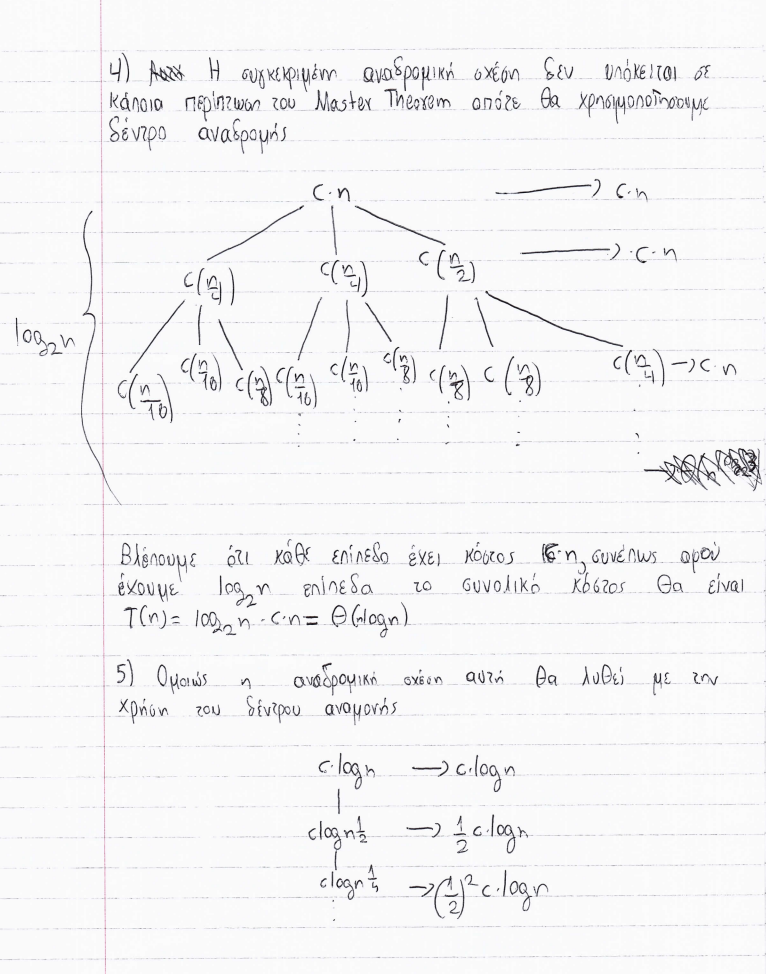 4) Η συγκεκριμένη αναδρομική σχέση δεν υπόκειται σε
κάποια περίπτωση του Master Theorem οπότε θα χρησιμοποιήσουμε
δέντρο αναδρομής
c·n → c·n
c(n/4) c(n/4) c(n/2) → c·n
log₂n
c(n/16) c(n/16) c(n/8) c(n/16) c(n/16) c(n/8) c(n/8) c(n/8) c(n/4) → c·n
Βλέπουμε ότι κάθε επίπεδο έχει κόστος c·n, συνεπώς αφού
έχουμε log₂n επίπεδα το συνολικό κόστος θα είναι
T(n) = log₂n · c·n = Θ(nlogn)
5) Ομοιώς η αναδρομική σχέση αυτή θα λυθεί με την
χρήση του δέντρου αναμονής
c·logn → c·logn
clogn^1/2 → 1/2 c·logn
clogn^1/4 → (1/2)² c·logn